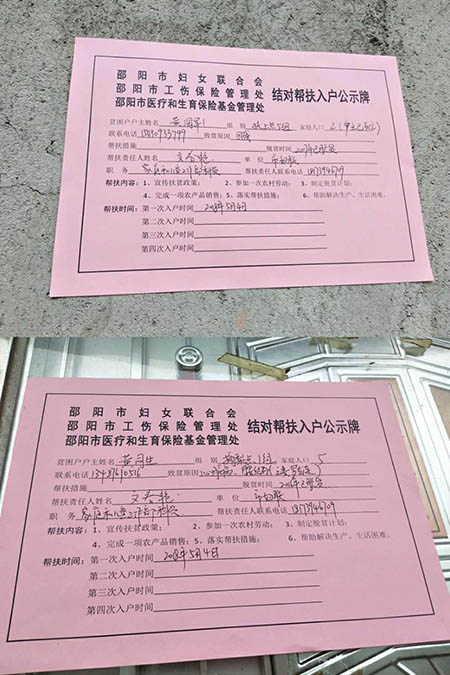 邵阳市妇女联合会
邵阳市工伤保险管理处 结对帮扶入户公示牌
邵阳市医疗和生育保险基金管理处
贫困户户主姓名 组别 家庭人口 2
联系电话 致贫原因 因病
帮扶措施 脱贫时间
帮扶责任人姓名 单位 市妇联
职务 帮扶责任人联系电话
帮扶内容：1、宣传扶贫政策； 2、参加一次农村劳动； 3、制定脱贫计划；
4、完成一项农产品销售；5、落实帮扶措施； 6、帮助解决生产、生活困难。
帮扶时间：第一次入户时间 2018年5月4日
第二次入户时间
第三次入户时间
第四次入户时间
邵阳市妇女联合会
邵阳市工伤保险管理处 结对帮扶入户公示牌
邵阳市医疗和生育保险基金管理处
贫困户户主姓名 组别 家庭人口 5
联系电话 致贫原因
帮扶措施 脱贫时间
帮扶责任人姓名 单位 市妇联
职务 帮扶责任人联系电话
帮扶内容：1、宣传扶贫政策； 2、参加一次农村劳动； 3、制定脱贫计划；
4、完成一项农产品销售；5、落实帮扶措施； 6、帮助解决生产、生活困难。
帮扶时间：第一次入户时间 2018年5月4日
第二次入户时间
第三次入户时间
第四次入户时间